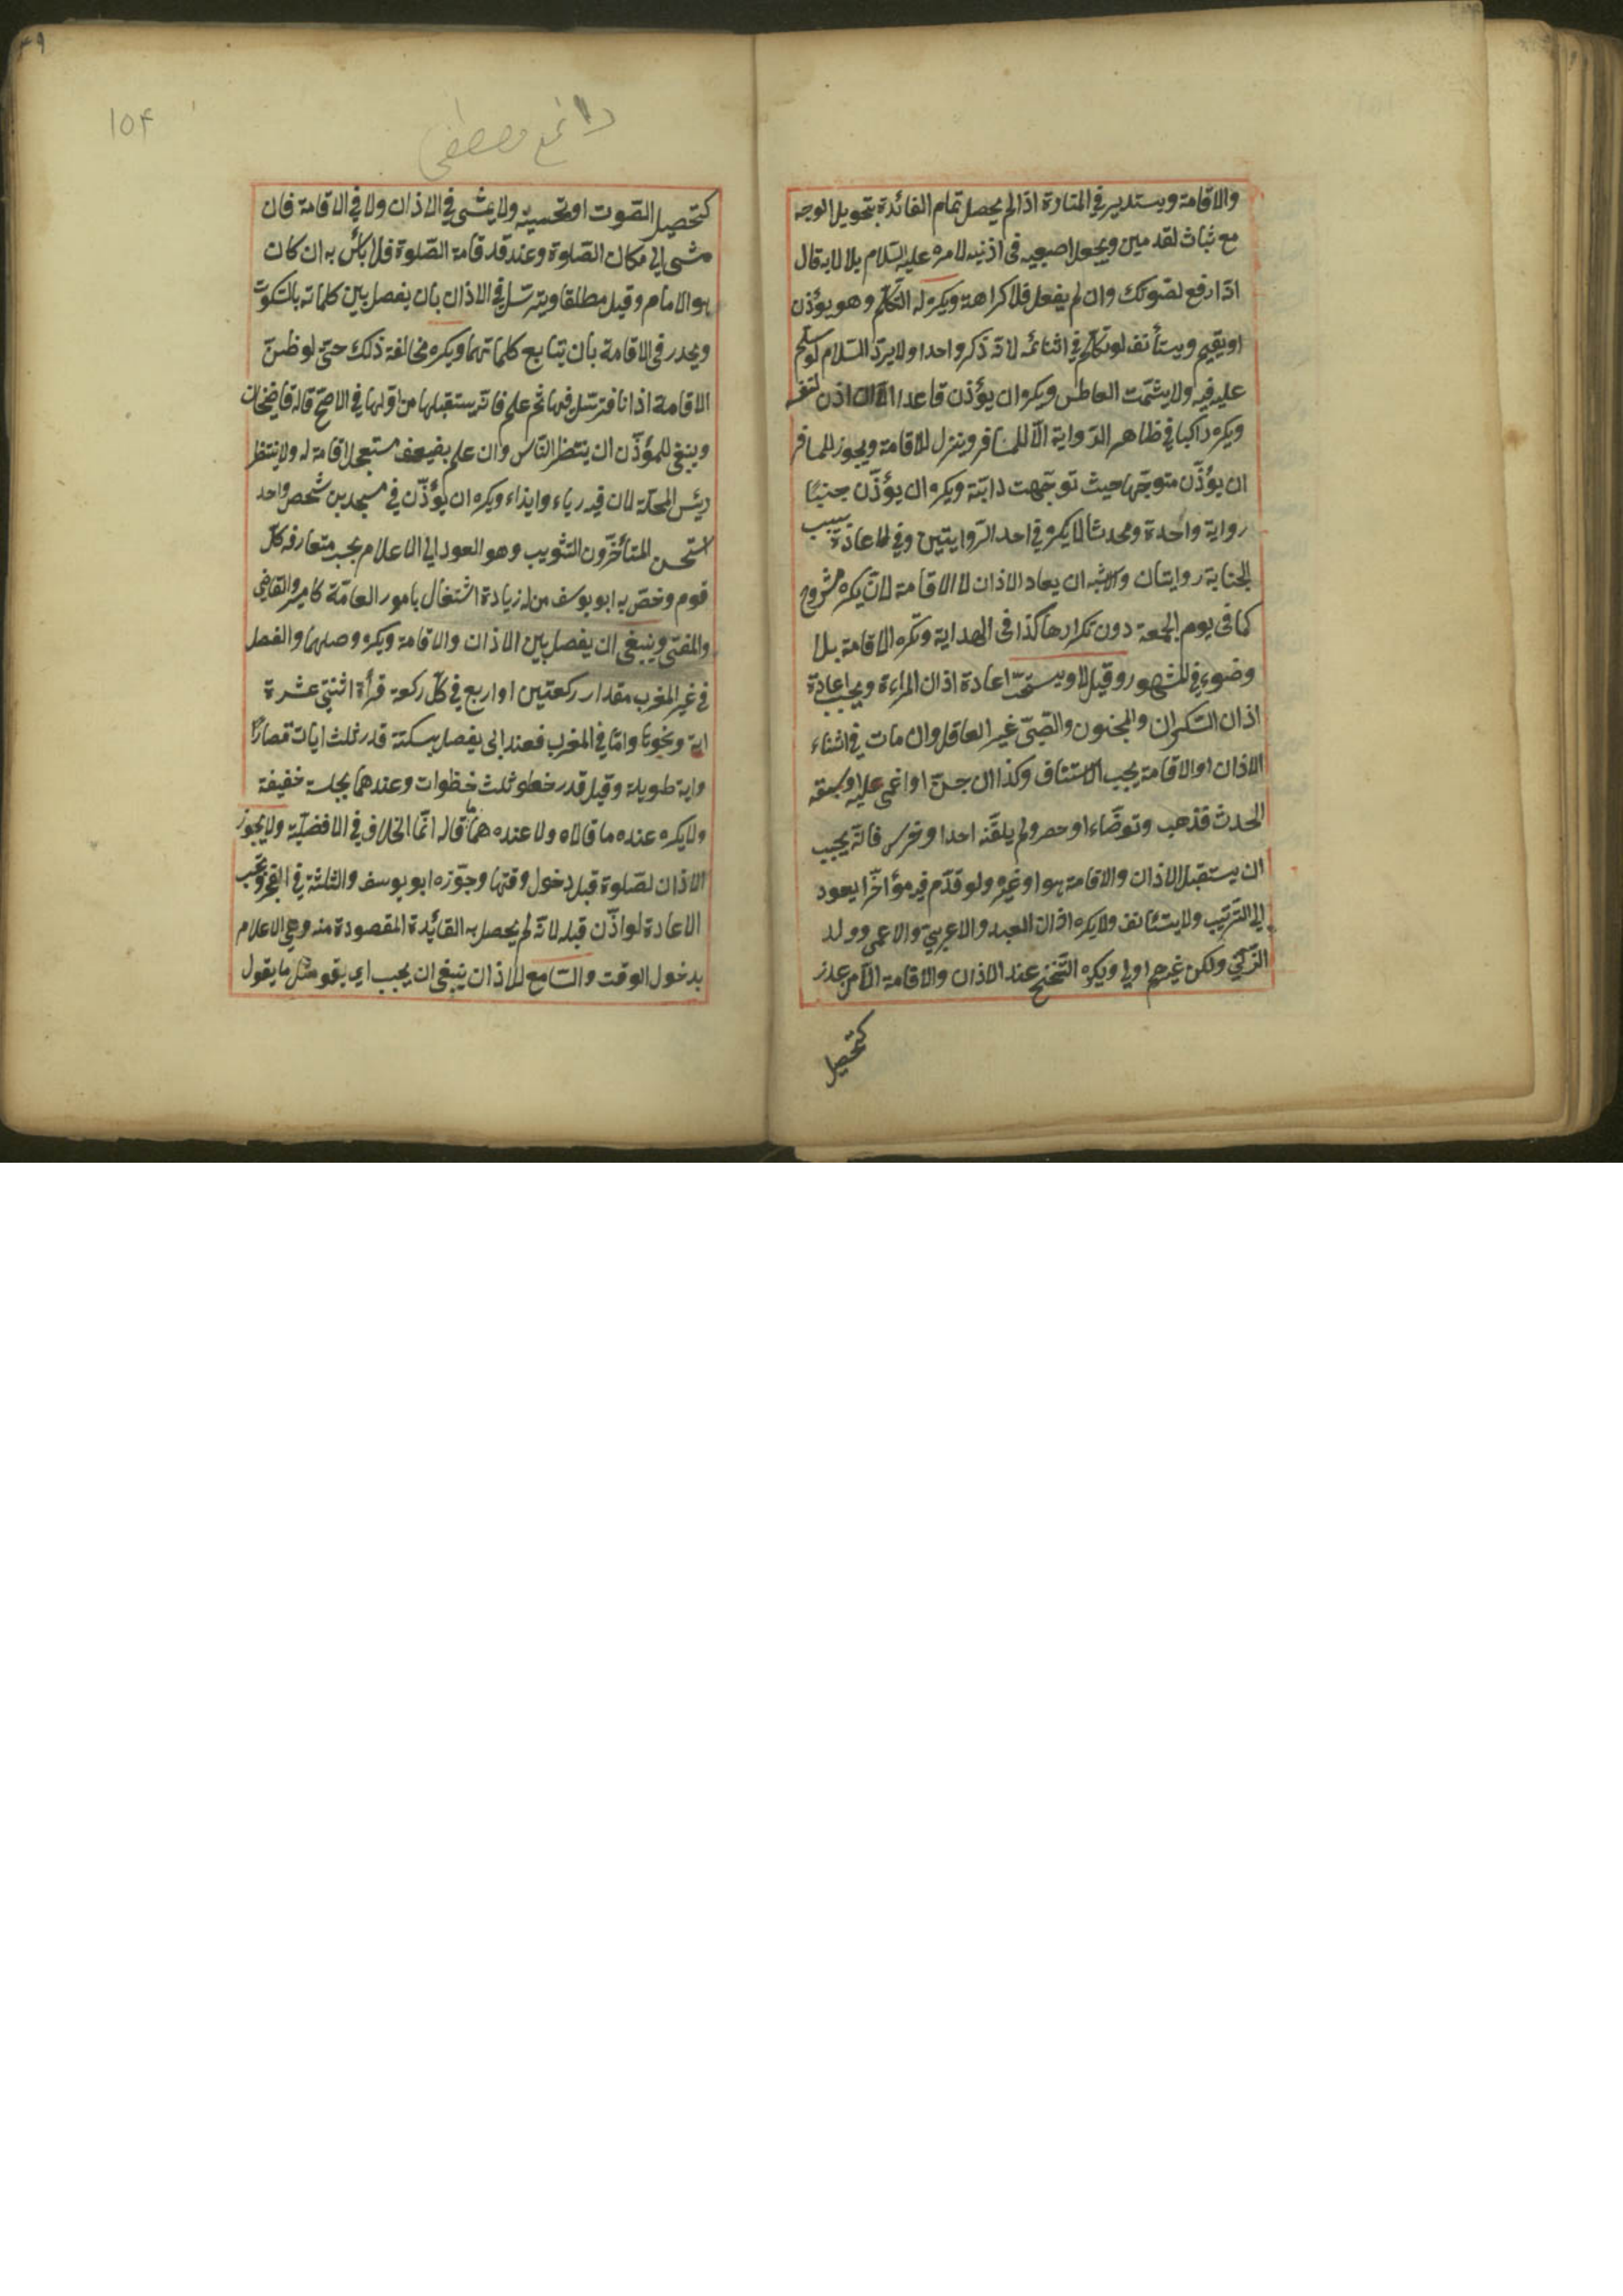 والاقامة ويستدير في المنارة اذا لم يحصل تمام الفائدة بتحويل الوجه
مع ثبات لقدمين ويجعل اصبعيه فى اذنيه لامره عليه السّلام بلالا به قال
اذا ارفع لصوتك وان لم يفعل فلا كراهة ويكره له التّكلّم وهو يؤذن
او يقيم ويستأنف لو تكلّم في اثنائه لانّه ذكر واحد او لا يردّ السّلام لو سلّم
عليه فيه ولا يشمّت العاطس ويكره ان يؤذن قاعدا الّا ان اذن لنفسه
ويكره راكبا في ظاهر الرّواية الّا للمسافر وينزل للاقامة ويجوز للمسافر
ان يؤذّن متوجّها حيث توجّهت دابّته ويكره ان يؤذّن جنبًا
رواية واحدة ومحدثا لا يكره في احد الرّوايتين وفي الاعادة بسبب
الجنابة روايتان والاشبه ان يعاد الاذان لا الاقامة لانّ تكره مشروع
كما فى يوم الجمعة دون تكرارها كذا فى الهداية وتكره الاقامة بلا
وضوء في المشهور وقيل لا ويستحبّ اعادة اذان المراءة ويجب اعادة
اذان السّكران والمجنون والصّبىّ غير العاقل وان مات في اثناء
الاذان او الاقامة يجب الاستئناف وكذا ان جنّ او اغمى عليه او سبقه
الحدث فذهب وتوضّاء او حصر ولم يلقّنه احد او خرس فانّه يجب
ان يستقبل الاذان والاقامة هو او غيره ولو قدّم فيه مؤاخّرا يعود
الى التّرتيب ولا يستئانف ولا يكره اذان العبد والاعربي والاعمى وولد
الزّنى ولكن غيرهم اولى ويكره التّنحنح عند الاذان والاقامة الّا من عذر
كتحصيل
١٥٤
كتحصيل الصّوت او تحسينه ولا يمشى في الاذان ولا في الاقامة فان
مشى الى مكان الصّلوة وعند قد قامة الصّلوة فلا بأس به ان كان
هو الامام وقيل مطلقا ويترسّل في الاذان بان يفصل بين كلماته بالسّكوت
ويحدر فى الاقامة بان يتابع كلماتهما ويكره مخالفة ذلك حتّى لو ظنّ
الاقامة اذانا فترسّل فيها ثم علم فانّه يستقبلها من اوّلها في الاصحّ قاله قاضيخان
وينبغى للمؤذّن ان ينتظر النّاس وان علم بضعيف مستعجل اقامة له ولا ينتظر
رئيس المحلّة لان فيه رياء وايذاء ويكره ان يؤذّن في مسجدين شخص واحد
استحسن المتأخّرون التّثويب وهو العود الى الاعلام بحسب متعارفه كلّ
قوم وخصّ به ابو يوسف من له زيادة اشتغال بامور العامّة كاميرو والقاضى
والمفتى وينبغى ان يفصل بين الاذان والاقامة ويكره وصلهما والفصل
في غير المغرب مقدار ركعتين او اربع في كلّ ركعة قرأة اثنتى عشرة
اية ونحوها وامّا في المغرب فعند ابى يفصل بسكتة قدر ثلث ايات قصارًا
واية طويلة وقيل قدر خطو ثلث خطوات وعندهما بجلسة خفيفة
ولا يكره عنده ما قالاه ولا عندهما ما قاله انّما الخلاف في الافضليّة ولا يجوز
الاذان لصّلوة قبل دخول وقتها وجوّزه ابو يوسف والثلثة في الفجر ويجب
الاعادة لو اذّن قبله لانّه لم يحصل به الفائدة المقصودة منه وهى الاعلام
بدخول الوقت والسّامع للاذان ينبغى ان يجب اى يقو مثل ما يقول